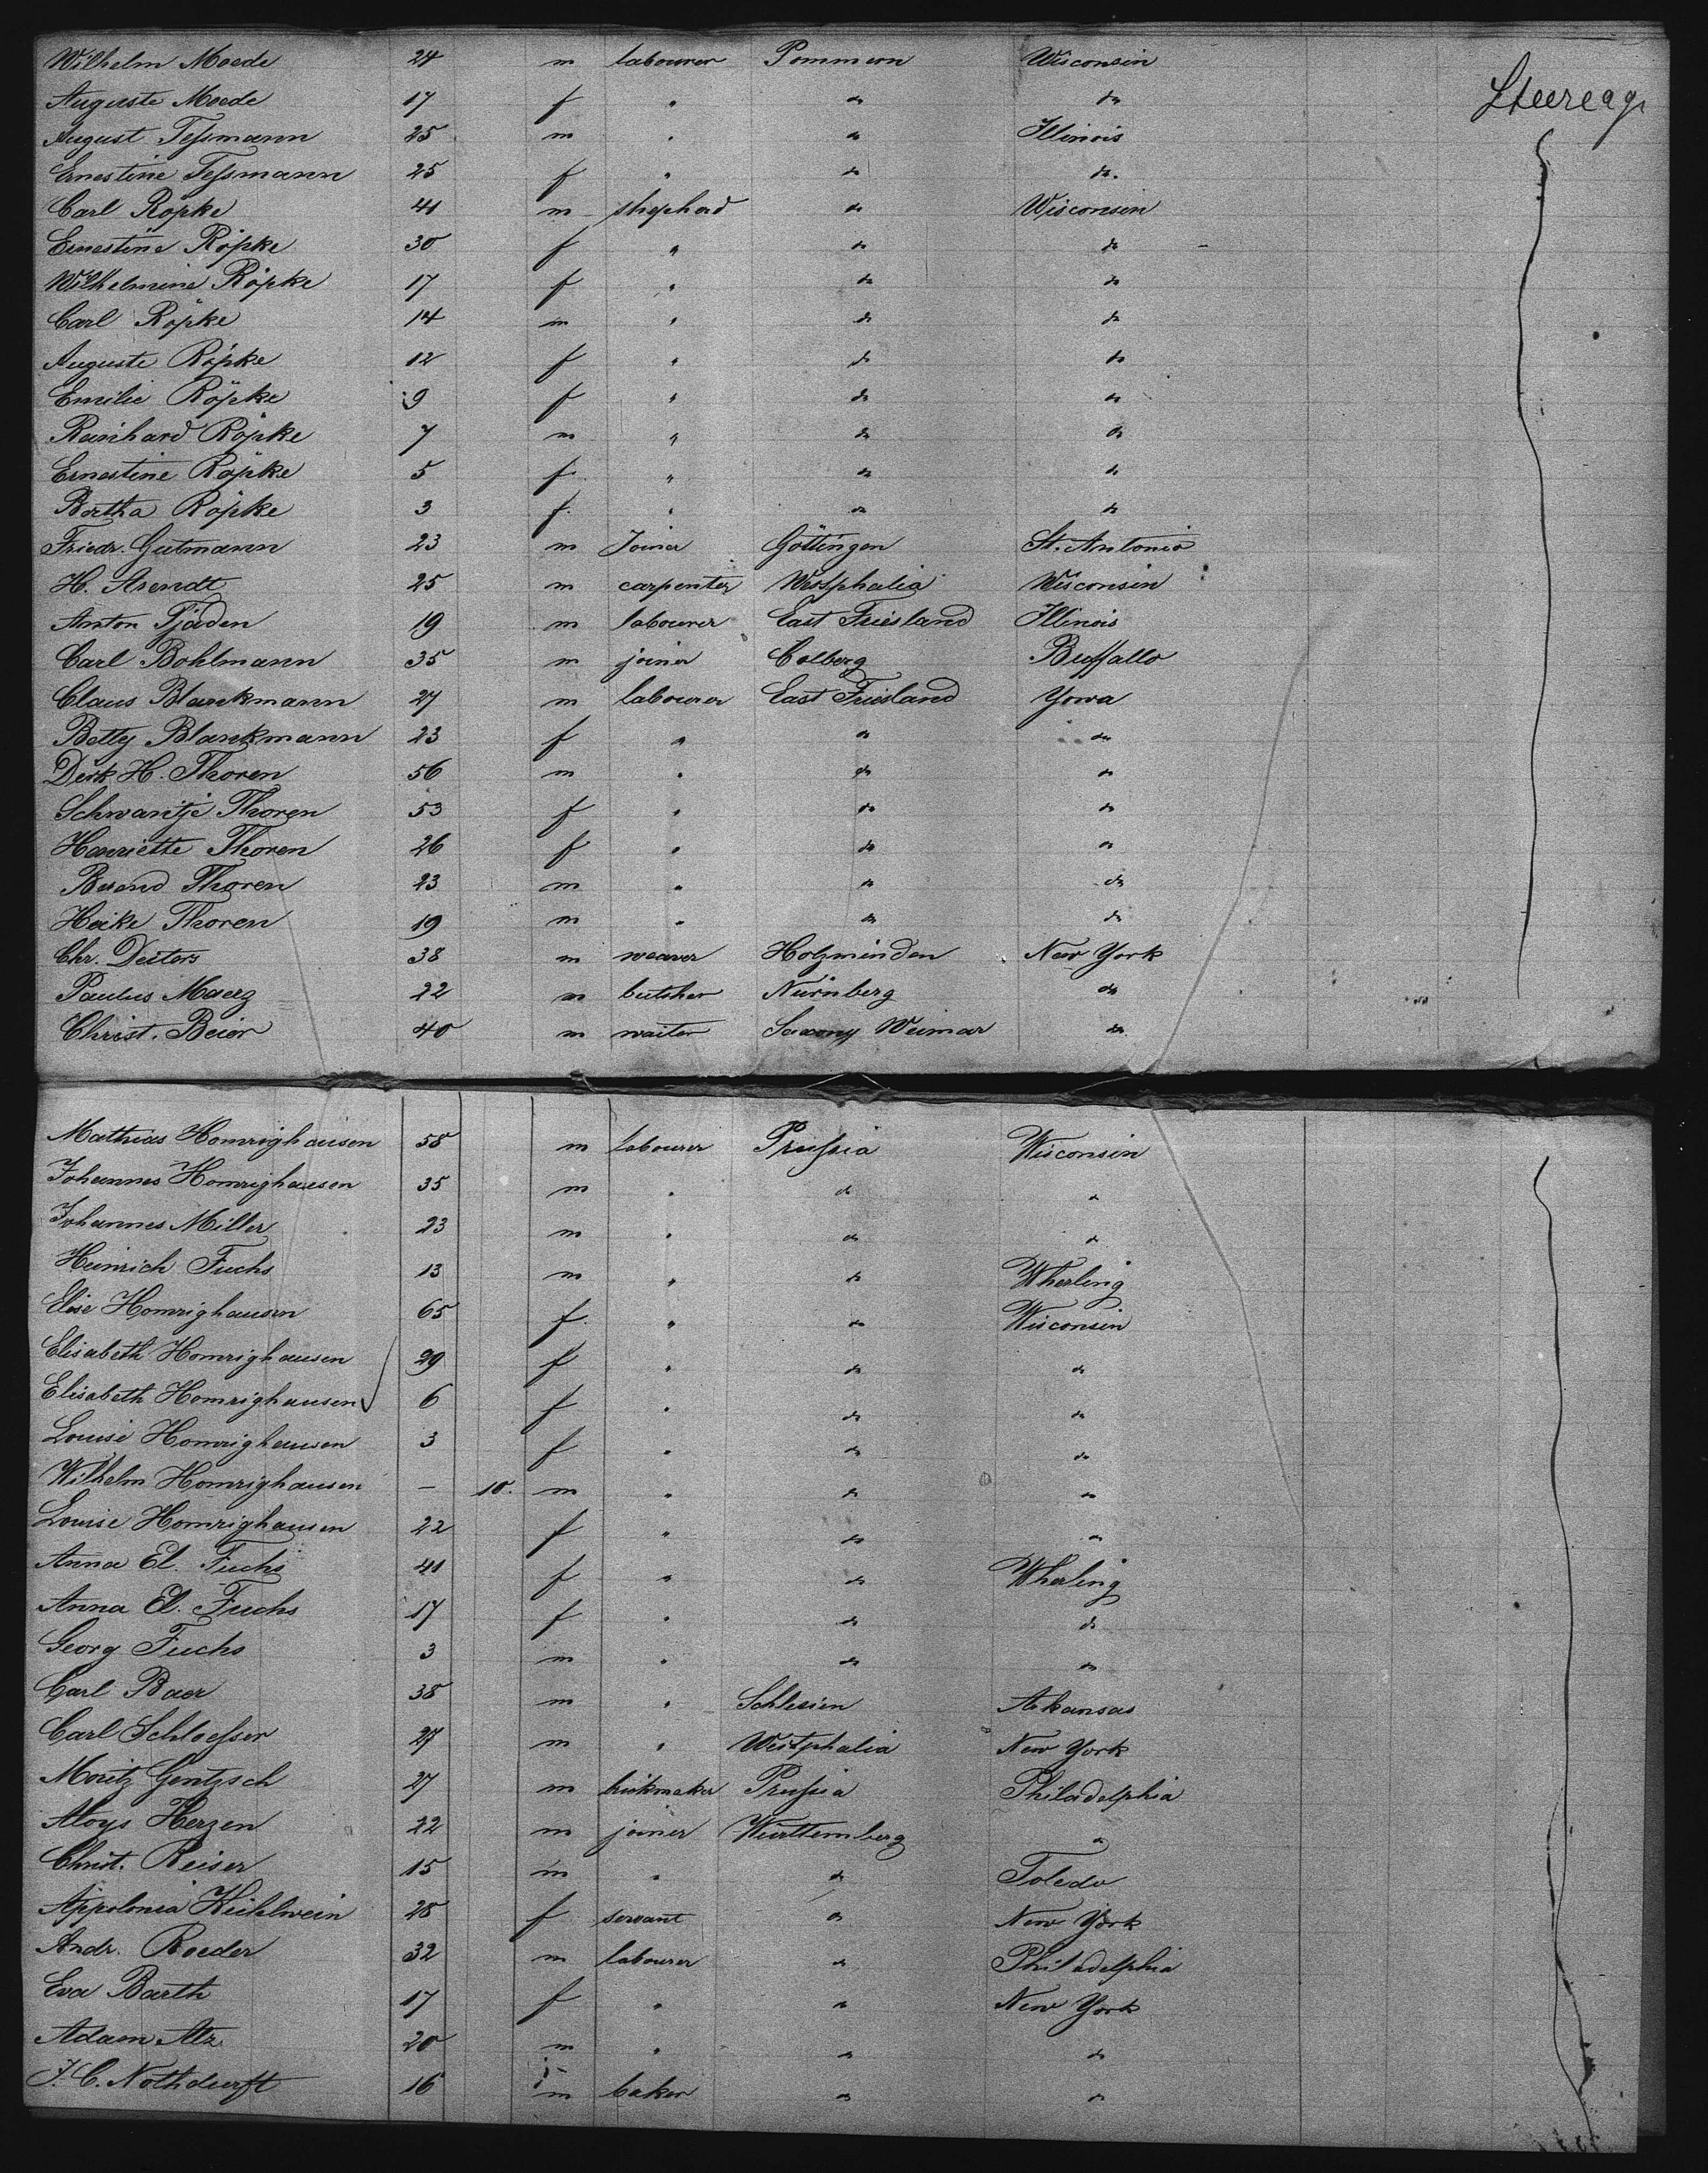 Steerage
Wilhelm Moede 24 m labourer Pommern Wisconsin
Auguste Moede 17 f " do do
August Teſsmann 25 m " do Illinois
Ernestine Teſsmann 25 f " do do.
Carl Röpke 41 m shepherd do Wisconsin
Ernestine Röpke 30 f " do do
Wilhelmine Röpke 17 f " do do
Carl Röpke 14 m " do do
Auguste Röpke 12 f " do do
Emilie Röpke 9 f " do do
Reinhard Röpke 7 m " do do
Ernestine Röpke 5 f " do do
Bertha Röpke 3 f " do do
Friedr. Gutmann 23 m Joiner Göttingen St. Antonio
H. Arendt 25 m carpenter Westphalia Wisconsin
Anton Tjaden 19 m labourer East Friesland Illinois
Carl Bohlmann 35 m joiner Colberg Buffallo
Claus Blankmann 27 m labourer East Friesland Yowa
Betty Blankmann 23 f " do do
Dirk H. Thoren 56 m " do do
Schwantje Thoren 53 f " do do
Harriette Thoren 26 f " do do
Berend Thoren 23 m " do do
Heike Thoren 19 m " do do
Chr. Deiters 38 m weaver Holzminden New York
Paulus Maerz 22 m butsher Nürnberg do
Christ. Beier 40 m waiter Saxony Weimar do
Mathias Homrighausen 58 m labourer Pruſsia Wisconsin
Johannes Homrighausen 35 m " do do
Johannes Miller 23 m " do do
Heinrich Fuchs 13 m " do Wheeling
Elise Homrighausen 65 f " do Wisconsin
Elisabeth Homrighausen 29 f " do do
Elisabeth Homrighausen 6 f " do do
Louise Homrighausen 3 f " do do
Wilhelm Homrighausen — 10. m " do do
Louise Homrighausen 22 f " do do
Anna El. Fuchs 41 f " do Wheeling
Anna El. Fuchs 17 f " do do
Georg Fuchs 3 m " do do
Carl Baer 38 m " Schlesien Arkansas
Carl Schloeſser 27 m " Westphalia New York
Moritz Gentzsch 27 m brickmaker Pruſsia Philadelphia
Aloys Herzen 22 m joiner Württemberg do
Christ. Reiser 15 m " do Toledo
Appolonia Kühlwein 28 f servant do New York
Andr. Roeder 32 m labourer do Philadelphia
Eva Barth 17 f " do New York
Adam Alz 20 m " do do
J. C. Nothdurft 16 m baker do do